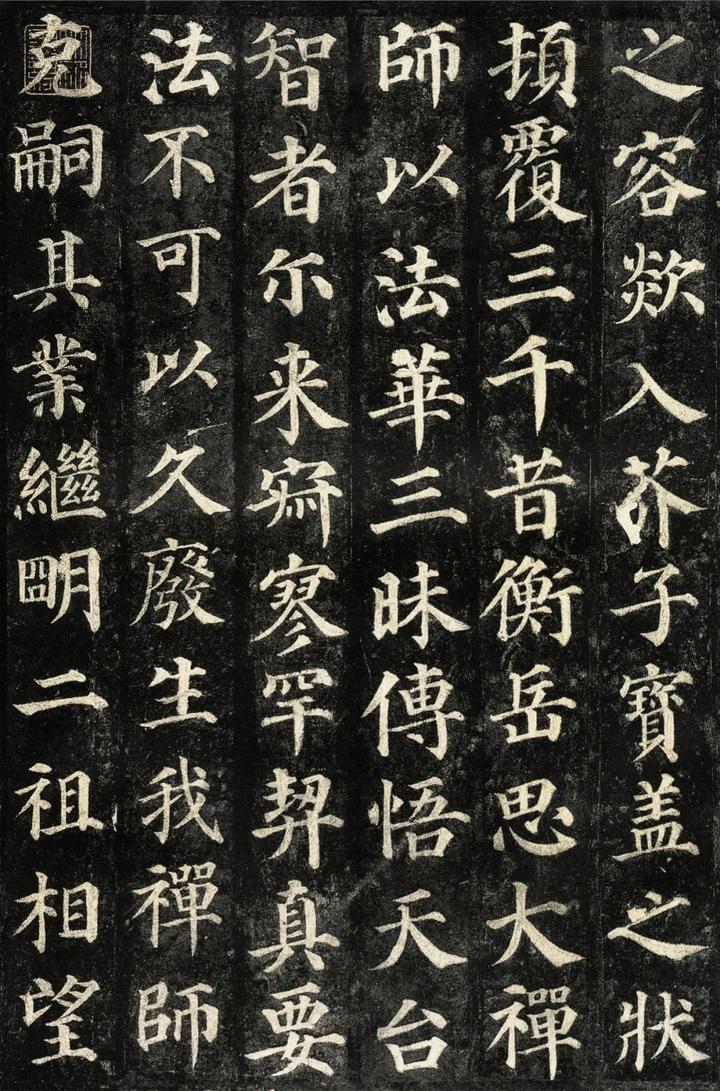 之容欻入芥子寶盖之狀
頓覆三千昔衡岳思大禪
師以法華三昧傳悟天台
智者尔来㝛寥罕契真要
法不可以久廢生我禪師
克嗣其業繼明二祖相望